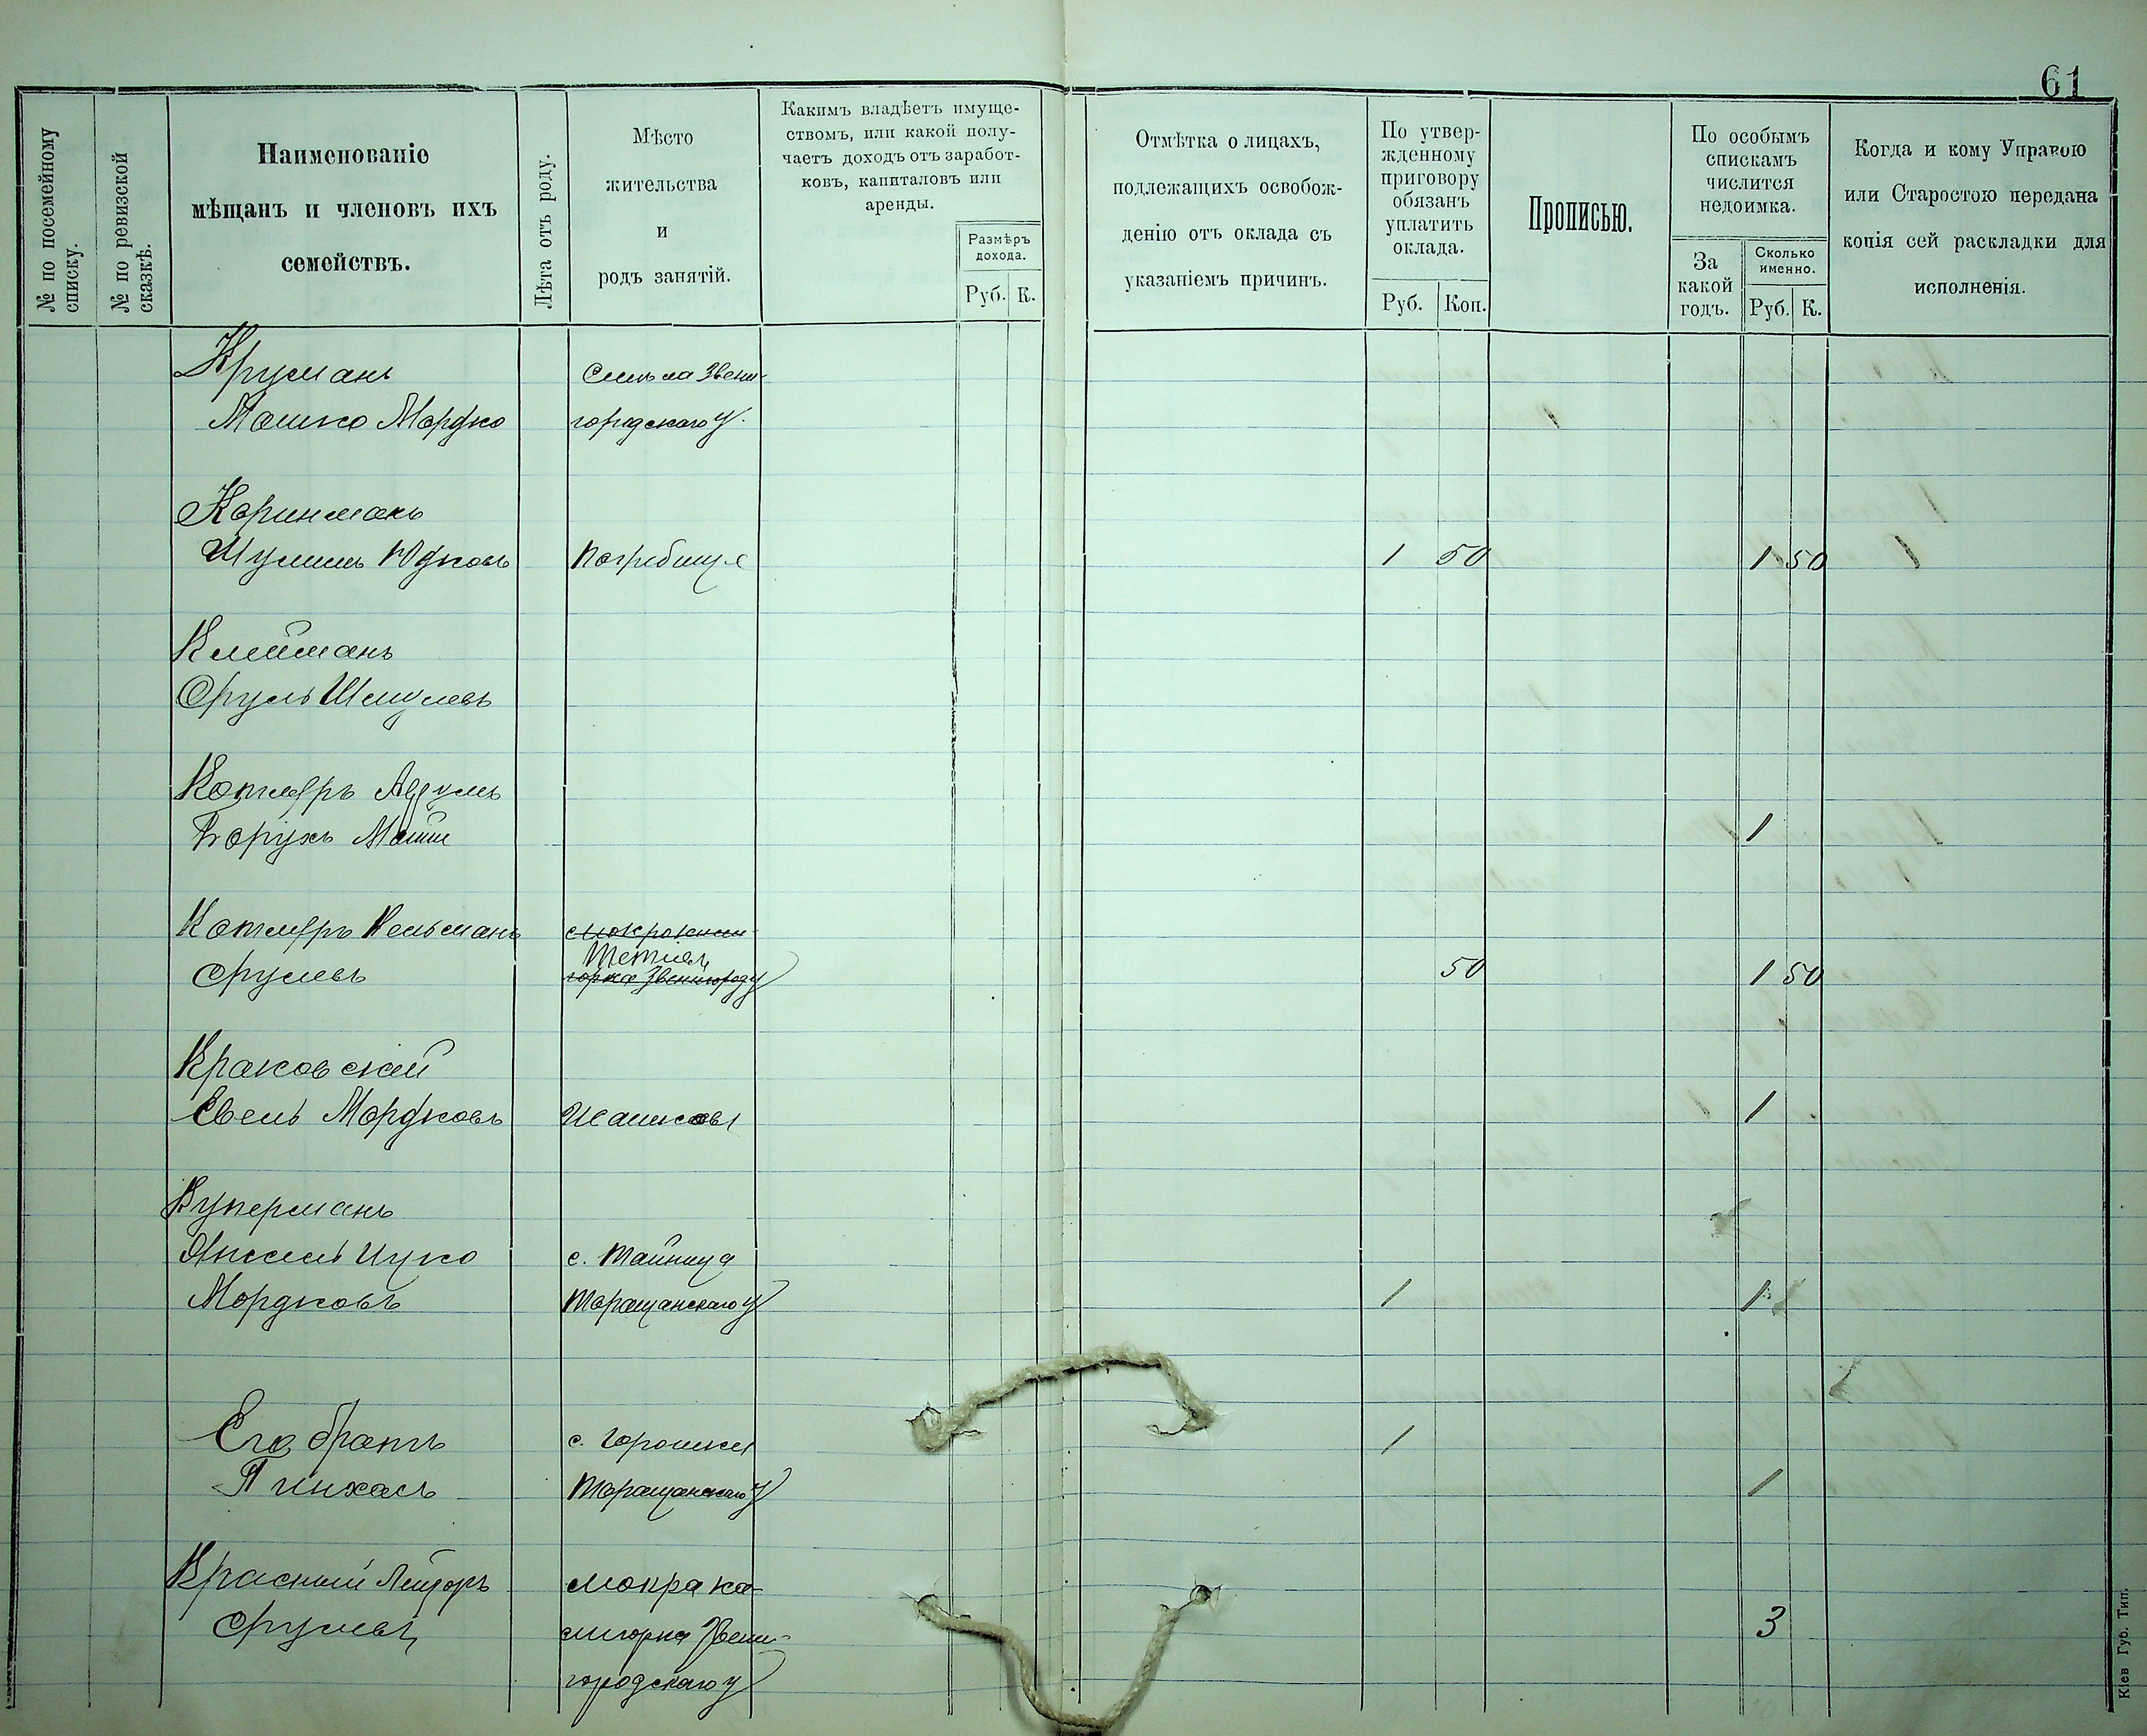 61
№ по посемейному
списку.
№ по ревизской
сказкѣ.
Наименованіе
мѣщанъ и членовъ ихъ
семействъ.
Лѣта отъ роду.
Мѣсто
жительства
и
родъ занятій.
Какимъ владѣетъ имуще-
ствомъ, или какой полу-
чаетъ доходъ отъ заработ-
ковъ, капиталовъ или
аренды.
Размѣръ
дохода.
Руб. К.
Отмѣтка о лицахъ,
подлежащихъ освобож-
денію отъ оклада съ
указаніемъ причинъ.
По утвер-
жденному
приговору
обязанъ
уплатить
оклада.
Руб. Коп.
Прописью.
По особымъ
спискамъ
числится
недоимка.
За
какой
годъ.
Сколько
именно.
Руб. К.
Когда и кому Управою
или Старостою передана
копія сей раскладки для
исполненія.
Круманъ Звени-
Мошко Мордко городскаго у.
Коринманъ
Шулимъ Юдковъ Погребище 1 50 1 50
Клейманъ
Сруль Шмулевъ
Котляръ
Борухъ 1
Котляръ Кельманъ
Срулевъ 50 1 50
Краковскій
Евель Мордковъ Жашковъ 1
Куперманъ
Анкель Ицко с. Тайница
Мордковъ Таращанскаго у 1 1
Его братъ с. Горошки 1
Пинхасъ Таращанскаго у 1
Красный Лейзоръ мокра ка-
Срулевъ лигорка Звени- 3
городскаго у
Кіев Губ. Тип.